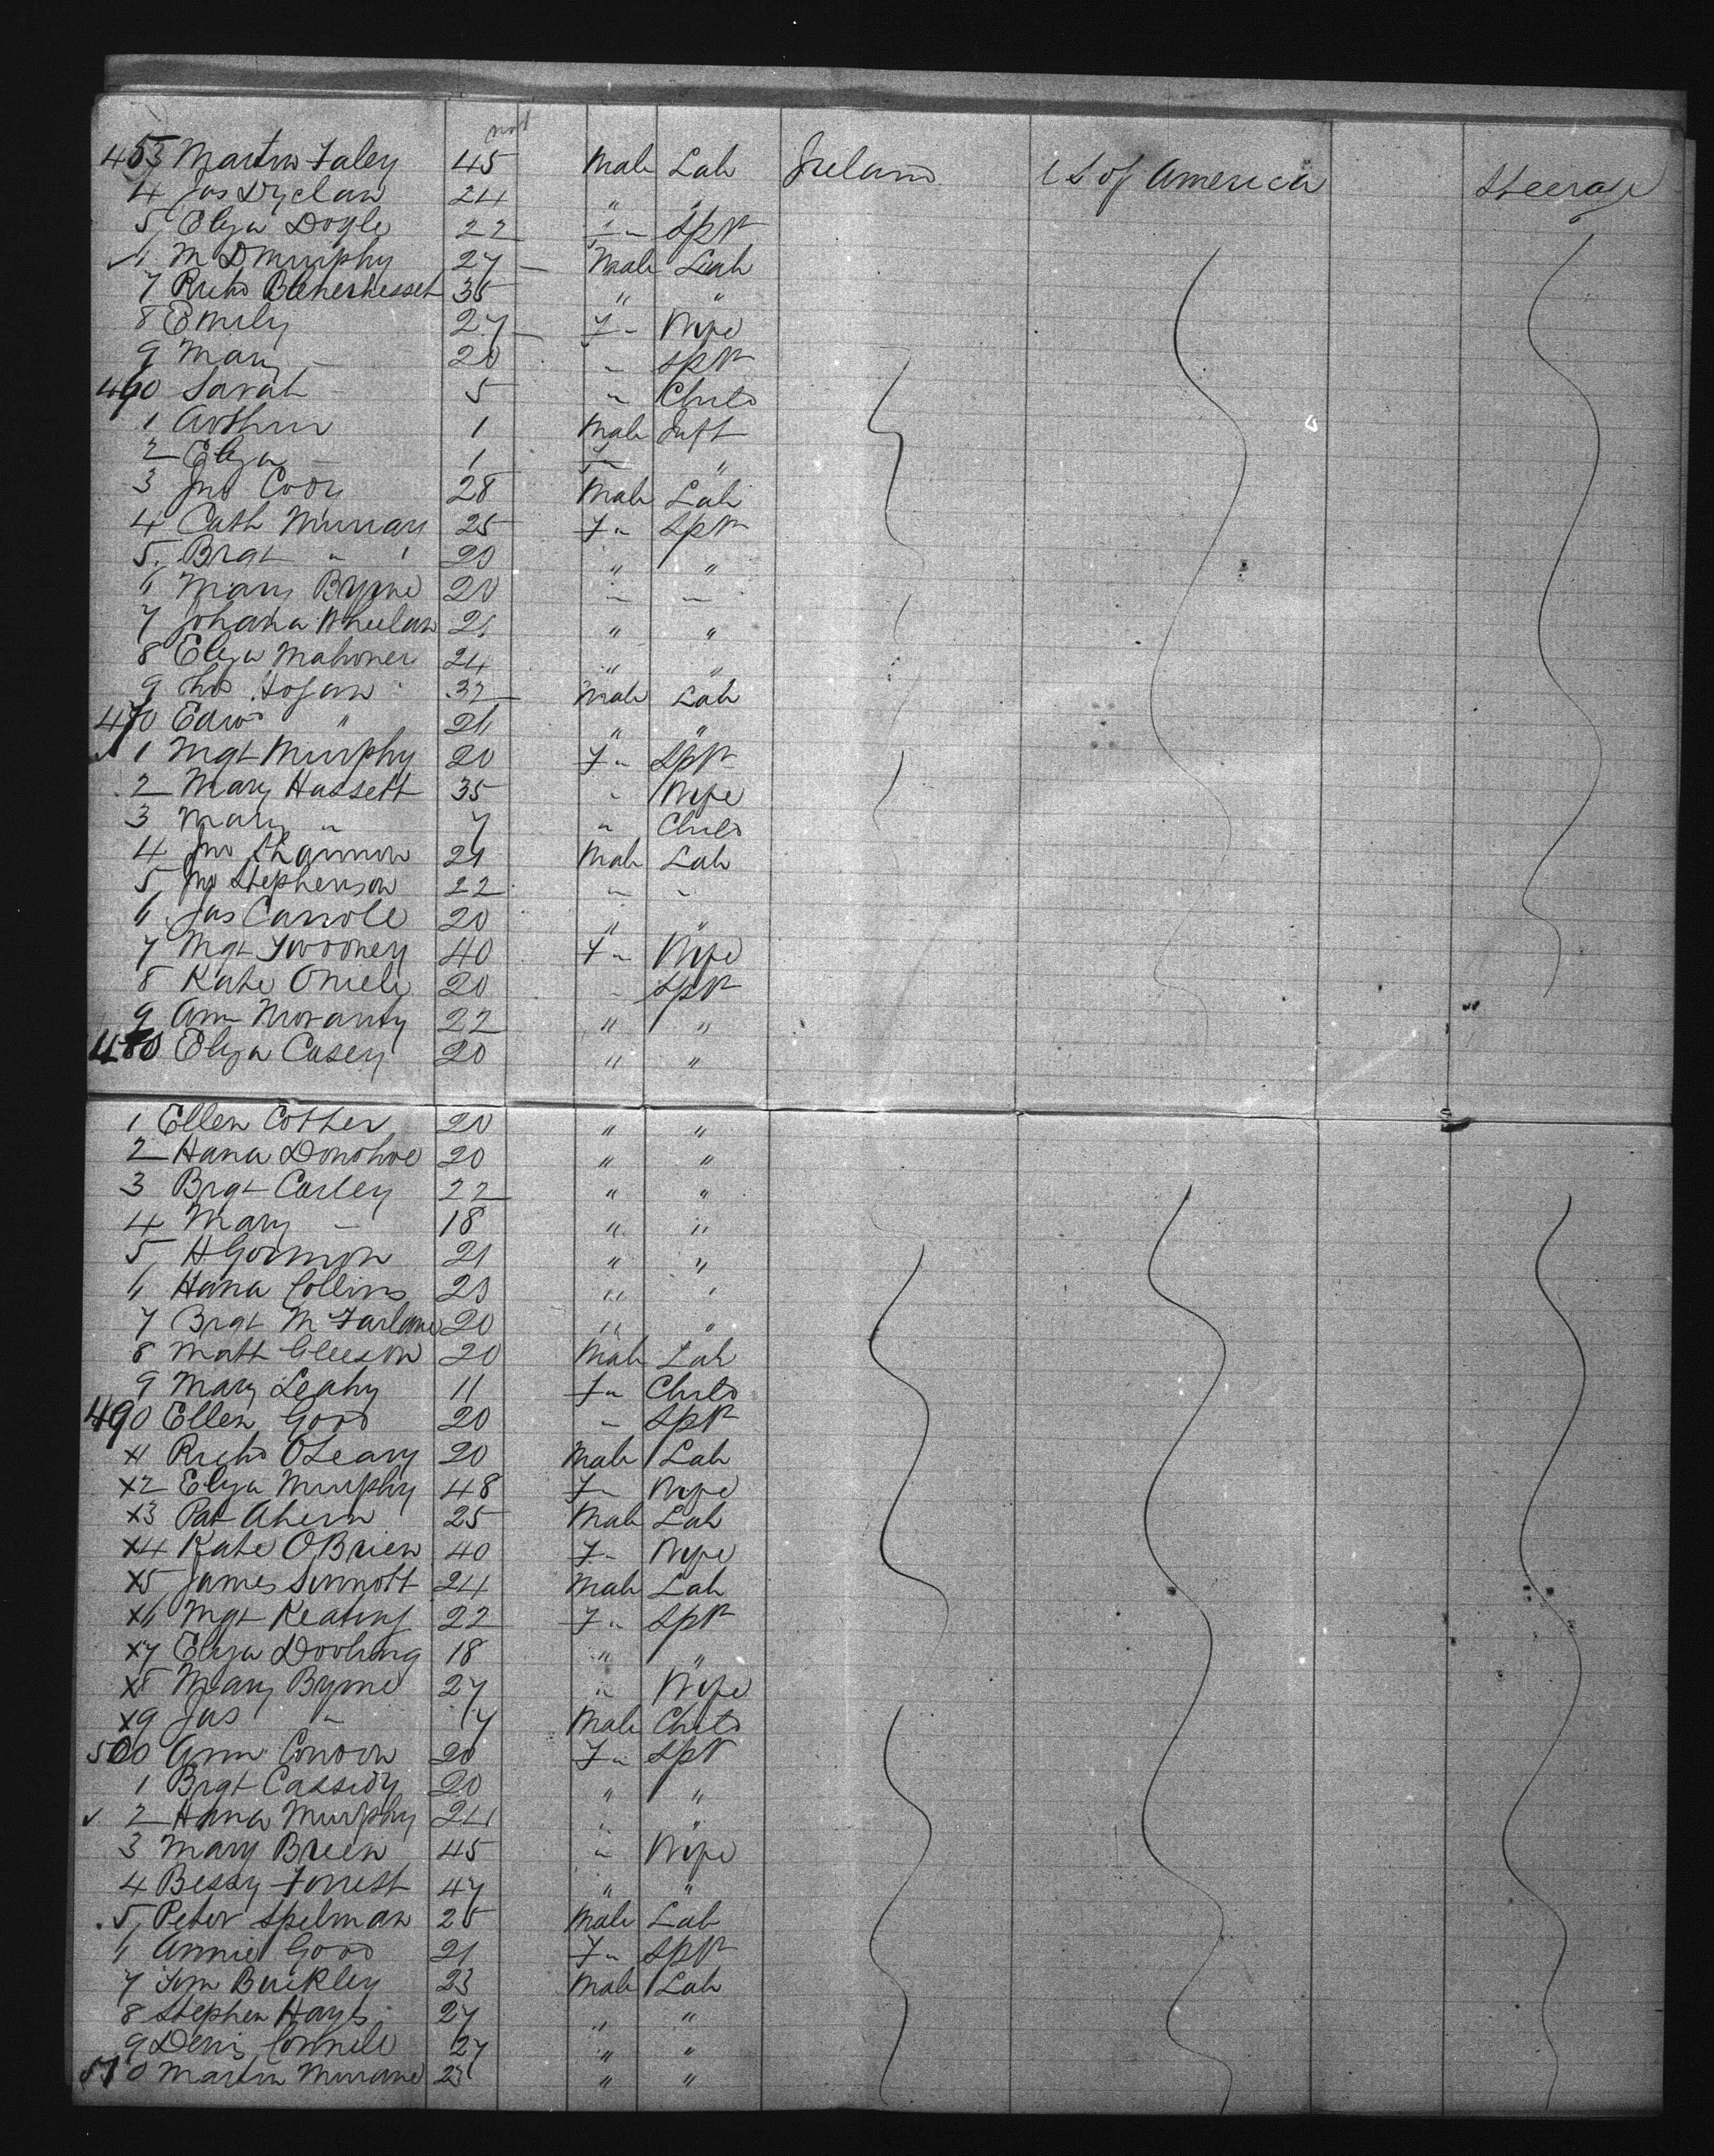 453 Martin Foley 45 Male Lab Ireland U S of America Steerage
4 Jas 24 " "
5 Eliza Doyle 22 F " Spr
6 M D Murphy 27 Male Lab
7 Richd 35 " "
8 Emily 27 F " Wife
9 Mary - 20 " Spr
460 Sarah - 5 " Child
1 Arthur 1 Male Inft
2 Eliza - 1 F "
3 Jno Cody 28 Male Lab
4 Cath Murray 25 F " Spr
5 Brgt " 20 " "
6 Mary Byrne 20 " "
7 Johana Wheelan 21 " "
8 Eliza Mahoney 24 " "
9 Thos Hogan 32 Male Lab
470 Edwd " 26 " "
1 Mgt Murphy 20 F " Spr
2 Mary Hassett 35 " Wife
3 Mary " 7 " Child
4 Jno Shannon 21 Male Lab
5 Jno Stephenson 22 " "
6 Jas Carroll 20 " "
7 Mgt Twooney 40 F " Wife
8 Kate Oniele 20 " Spr
9 Ann Moranty 22 " "
480 Eliza Casey 20 " "
1 Ellen Cother 20 " "
2 Hana Donohoe 20 " "
3 Brgt Curley 22 " "
4 Mary - 18 " "
5 H Gormon 21 " "
6 Hana Collins 23 " "
7 Brgt McFarlane 20 " "
8 Matt Gleeson 20 Male Lab
9 Mary Leahy 11 F " Child
490 Ellen Good 20 " Spr
x1 Richd OLeary 20 Male Lab
x2 Eliza Murphy 48 F " Wife
x3 Pat Ahern 25 Male Lab
x4 Kate OBrien 40 F " Wife
x5 James Sinnott 24 Male Lab
x6 Mgt Keating 22 F " Spr
x7 Eliza Dooling 18 " "
x8 Mary Byrne 27 " Wife
x9 Jas " 7 Male Child
500 Ann Condon 20 F " Spr
1 Brgt Cassidy 20 " "
2 Hana Murphy 21 " "
3 Mary Breen 45 " Wife
4 Bessy Forrest 47 " "
5 Peter Spelman 25 Male Lab
6 Annie Good 21 F " Spr
7 Tim Buckley 23 Male Lab
8 Stephen Hays 27 " "
9 Denis Connell 27 " "
510 Martin Murane 23 " "